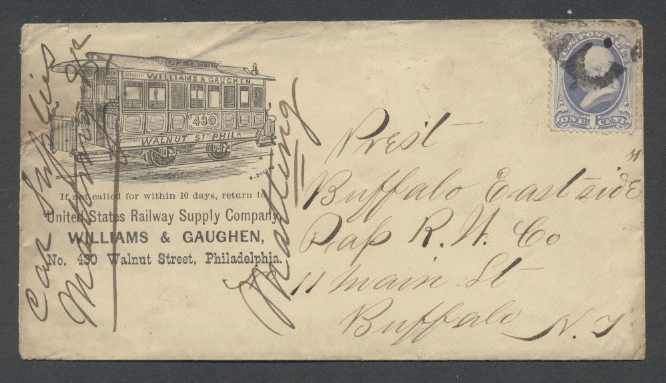 WILLIAMS & GAUGHEN.
430
WALNUT ST. PHILA
If not called for within 10 days, return to
United States Railway Supply Company,
WILLIAMS & GAUGHEN,
No. 430 Walnut Street, Philadelphia.
Car Supplies
Matting
Prest
Buffalo East side
Pap R. W. Co
11 Main St
Buffalo N. Y
ONE CENT